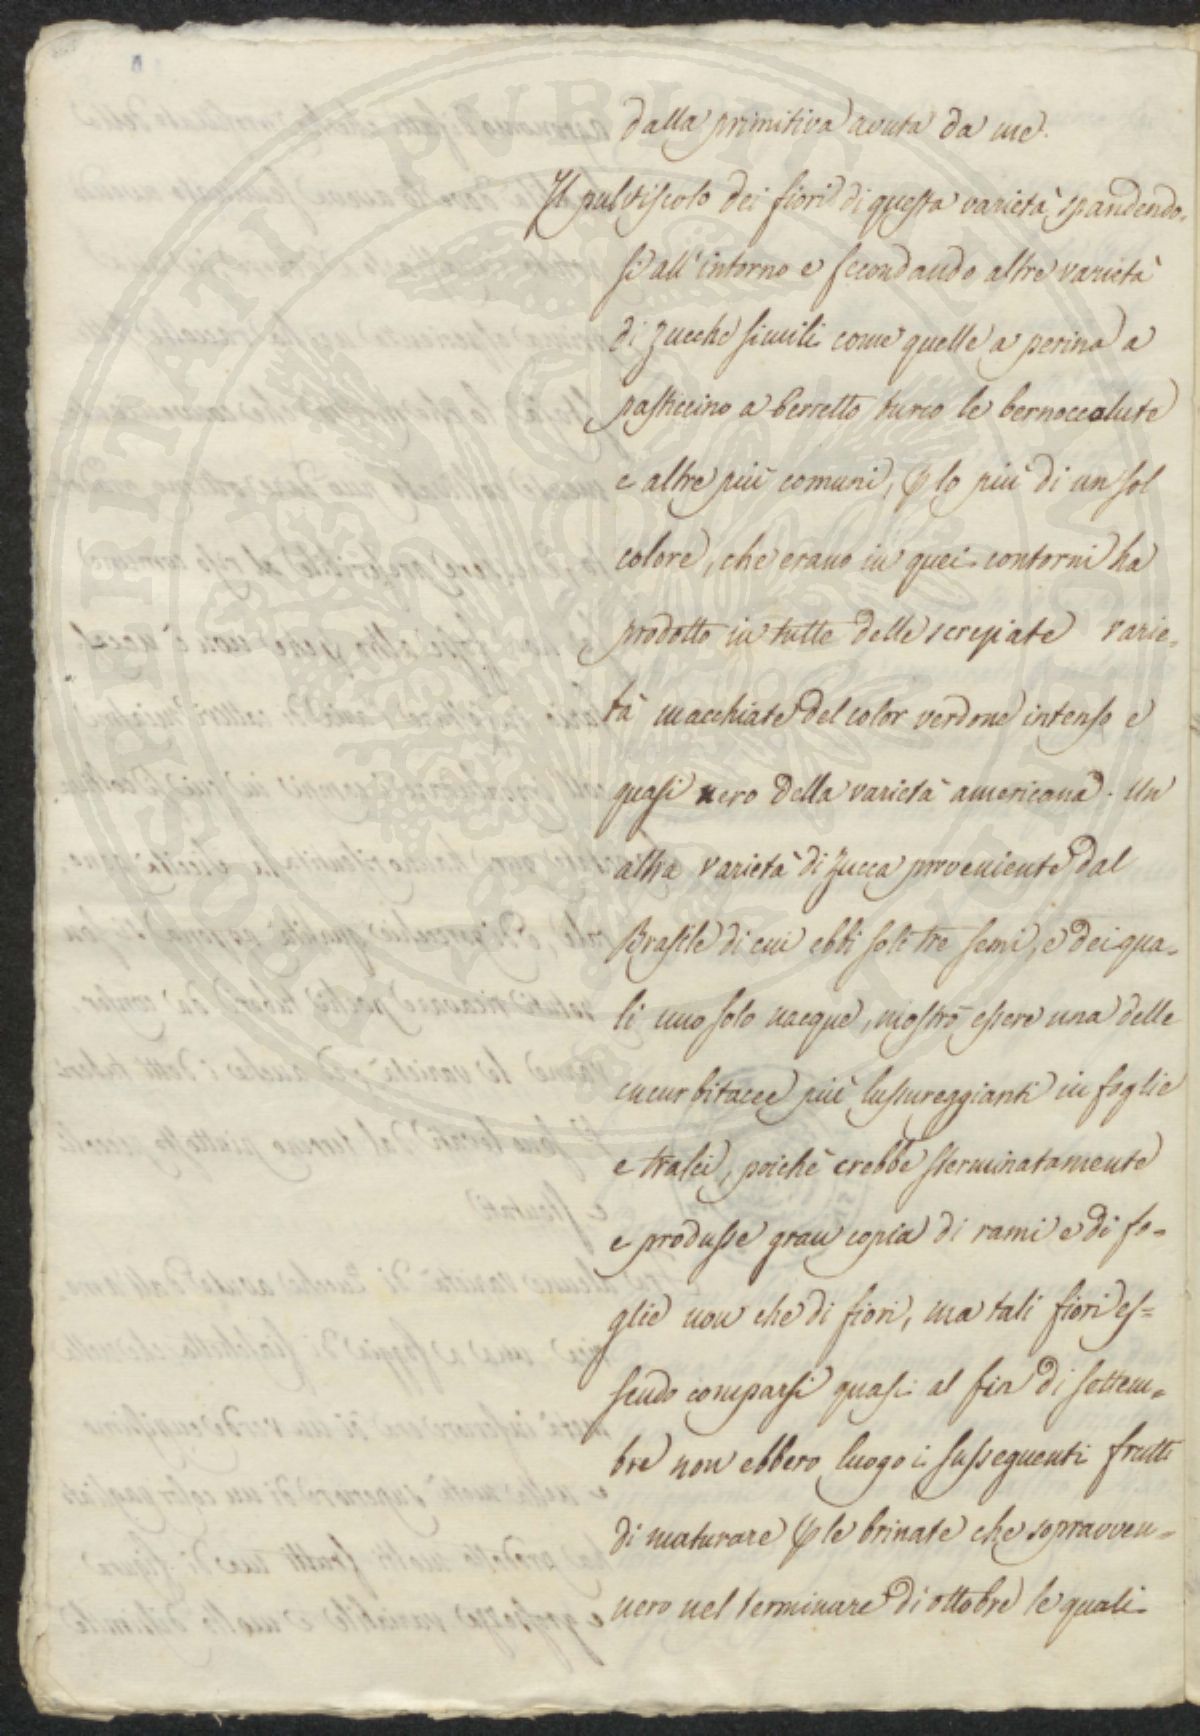 dalla primitiva avuta da me.
Il pulviscolo dei fiori di questa varietà spandendo-
si all'intorno e fecondando altre varietà
di zucche simili come quelle a perina a
pasticcino a berretto turco le bernoccolute
e altre più comuni, lo più di un sol
colore, che erano in quei contorni ha
prodotto in tutte delle screpiate varie-
tà macchiate del color verdone intenso e
quasi nero della varietà americana. Un
altra varietà di zucca proveniente dal
Brasile di cui ebbi soli tre semi, e dei qua-
li uno solo nacque, mostrò essere una delle
cucurbitacee più lussureggianti in foglie
e tralci, poichè crebbe sterminatamente
e produsse gran copia di rami e di fo-
glie non che di fiori, ma tali fiori es-
sendo comparsi quasi al fin di settem-
bre non ebbero luogo i susseguenti frutti
di maturare le brinate che sopravven-
nero nel terminare di ottobre le quali